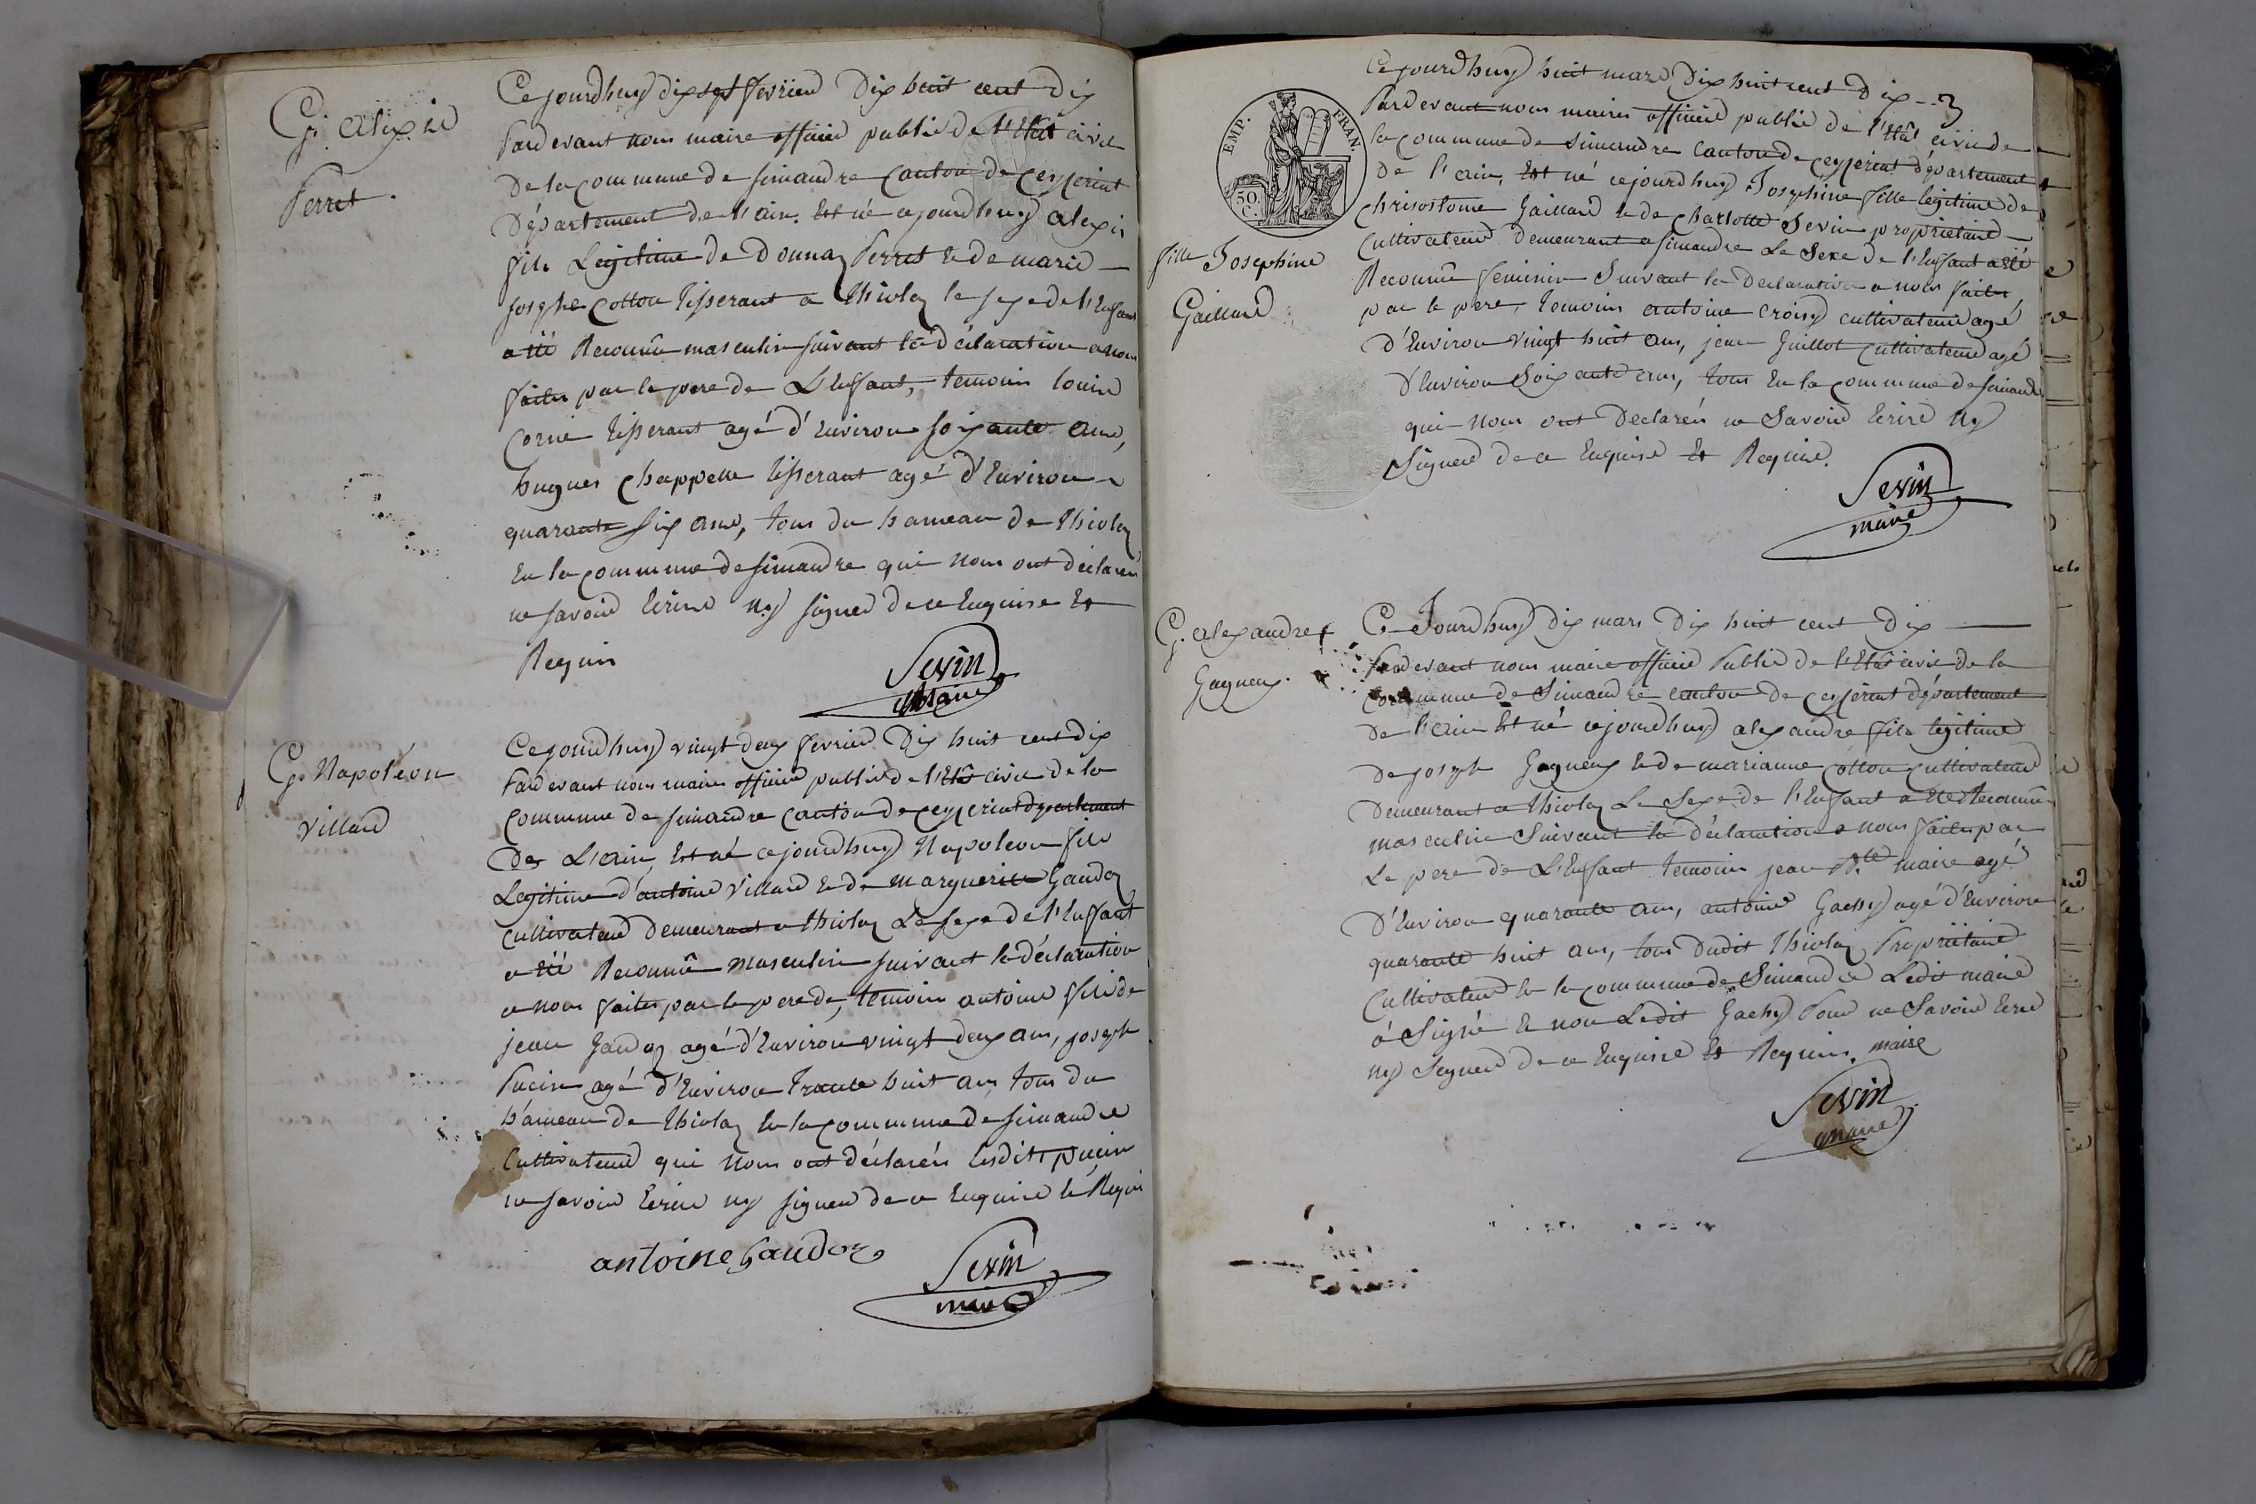 G. alexis
Perret.
Cejourdhuy dix sept fevrier Dix huit cent dix
Pardevant nous maire officier public de l'Etat civil
De la commune de simandre canton de ceyzeriat
Département de l'ain. Est né cejourdhuy alexis
fils Legitime de Donnaz Perret & de marie
josephe cotton tisserant a thiolaz le sexe de l'Enfant
a été Reconnû masculin suivant la déclaration a nous
faites par le pere de L'Enfant, temoins louis
Corné tisserant agé d'Environ soixante ans,
hugues Chappelle tisserant agé d'Environ
quarante six ans, tous du hameau de thiolaz
En la commune de simandre qui nous ont déclarés
ne savoir Ecrire ny signer de ce Enquise Et
Requis
Sevin
Maire
G. Napoléon
Villard
Cejourdhuy vingt deux fevrier Dix huit cent dix
Pardevant nous maire officier public de l'Etat civil de la
commune de simandre canton de ceyzeriat département
De L'ain, Est né cejourdhuy Napoleon fils
Legitime d'antoine Villard & de marguerite Gandoz
cultivateur Demeurant a thiolaz Le sexe de l'Enffant
a été Reconnû masculin suivant la déclaration
a nous faites par le pere de, temoins antoine fils de
jean Gandoz agé d'Environ vingt deux ans, joseph
Pucin agé d'Environ Trante huit ans tous du
hameau de thiolaz En la commune de simandre
Cultivateur qui nous ont déclarés Lesdits pucin
ne savoir Ecrire ny signer de ce Enquise Et Requis
antoine Gandoz
Sevin
maire
EMP. FRAN.
50.
C.
fille Josephine
Gaillard
Cejourdhuy huit mars Dix huit cent dix -- 3
Pardevant nous maires officier public de l'Etât civil de
la commune de simandre canton de ceyzeriat département
De l'ain, Est né cejourdhuy Josephine fille légitime de
Chrisostome Gaillard & de Charlotte Sevin propriétaire
Cultivateur Demeurant a simandre Le Sexe de l'Enfant a été
Reconnû feminin Suivant la Declaration a nous faites
par le pere, temoins antoine croisy cultivateur agé
D'Environ vingt huit ans, jean Guillot cultivateur agé
D'Environ Soixante ans, tous En la commune de simandre
qui nous ont Declarés ne Savoir Ecrire Ny
Signer de ce Enquise Et Requise.
Sevin
maire
G. alexandre
Gagneux.
Ce Jourdhuy dix mars Dix huit cent Dix
Pardevant nous maire officier Public de l'Etat civil de la
Commune de Simandre canton de ceyzeriat département
De l'ain Est né cejourdhuy alexandre fils legitime
De joseph Gagneux & de marianne cotton cultivateur
Demeurant a thiolaz Le Sexe de l'Enfant a été Reconnû
masculin Suivant la déclaration a nous faites par
Le pere de L'Enfant temoins jean Bte maire agé
D'Environ quarante ans, antoine Gachy agé d'Environ
quarante huit ans, tous Dudit thiolaz Propriétaire
Cultivateur En la commune de Simandre Ledit maire
á Signé & non Ledit Gachy Pour ne Savoir Ecrire
ny Signer de ce Enquise Et Requis. maire
Sevin
maire